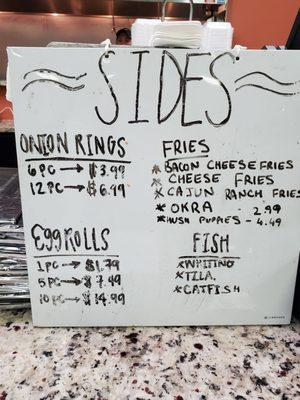 SIDES
ONION RINGS
6 PC → $3.99
12 PC → $6.99
EGGROLLS
1 PC → $1.79
5 PC → $7.49
10 PC → $14.99
FRIES
* BACON CHEESE FRIES
* CHEESE FRIES
* CAJUN RANCH FRIES
* OKRA - 2.99
* HUSH PUPPIES - 4.49
FISH
* WHITING
* TILA.
* CATFISH